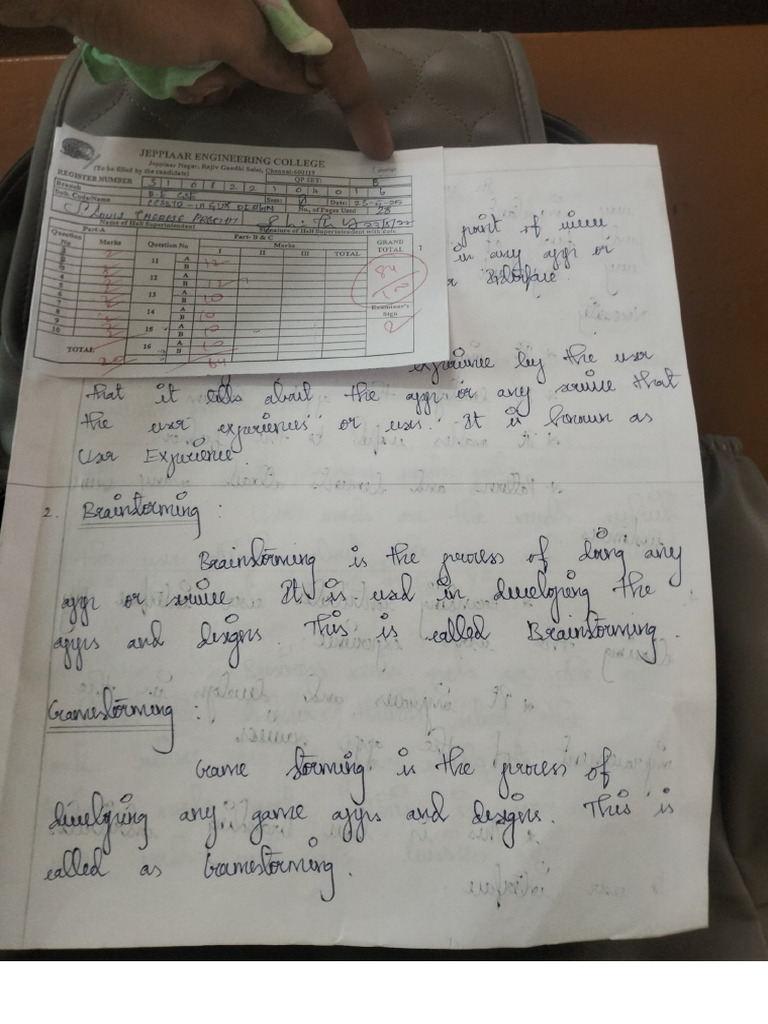 JEPPIAAR ENGINEERING COLLEGE
Jeppiaar Nagar, Rajiv Gandhi Salai, Chennai-600119
(To be filled by the candidate)
QP SET:
REGISTER NUMBER 3 1 0 8 2 2 1 0 4 0 1 6
Branch B.E CSE Sem:
Sub. Code/Name DESIGN No. of Pages Used 28
Name of Hall Superintendent Signature of Hall Superintendent with date
Part-A Part- B & C
Question No Marks Question No Marks TOTAL GRAND TOTAL
I II III
11 A 12
B
12 A
B 12
13 A
B 10
14 A 10
B
15 A
B 10
16 A 10
B
84
Examiner's Sign
TOTAL 20 64
point of view
in any app or
experience by the user
that it tells about the app or any service that
the user experiences or uses. It is known as
User Experience.
2. Brainstorming :
Brainstorming is the process of doing any
app or service It is used in developing the
apps and designs. This is called Brainstorming.
Gamestorming :
Game storming is the process of
developing any game apps and designs. This is
called as Gamestorming.